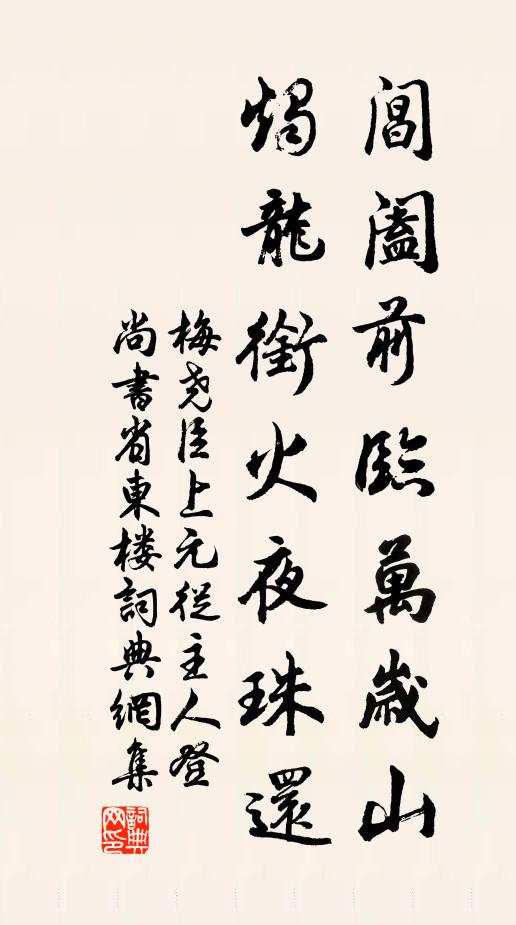 閶闔前臨萬歲山
燭龍銜火夜珠還
梅堯臣上元從主人登
尚書省東樓詞典網集
詞典
网印